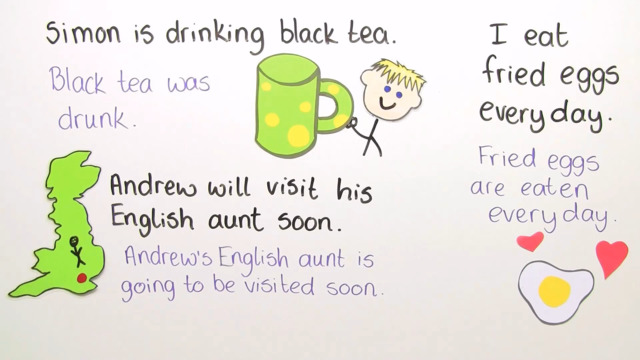 Simon is drinking black tea.
Black tea was
drunk.
Andrew will visit his
English aunt soon.
Andrew's English aunt is
going to be visited soon.
I eat
fried eggs
every day.
Fried eggs
are eaten
every day.